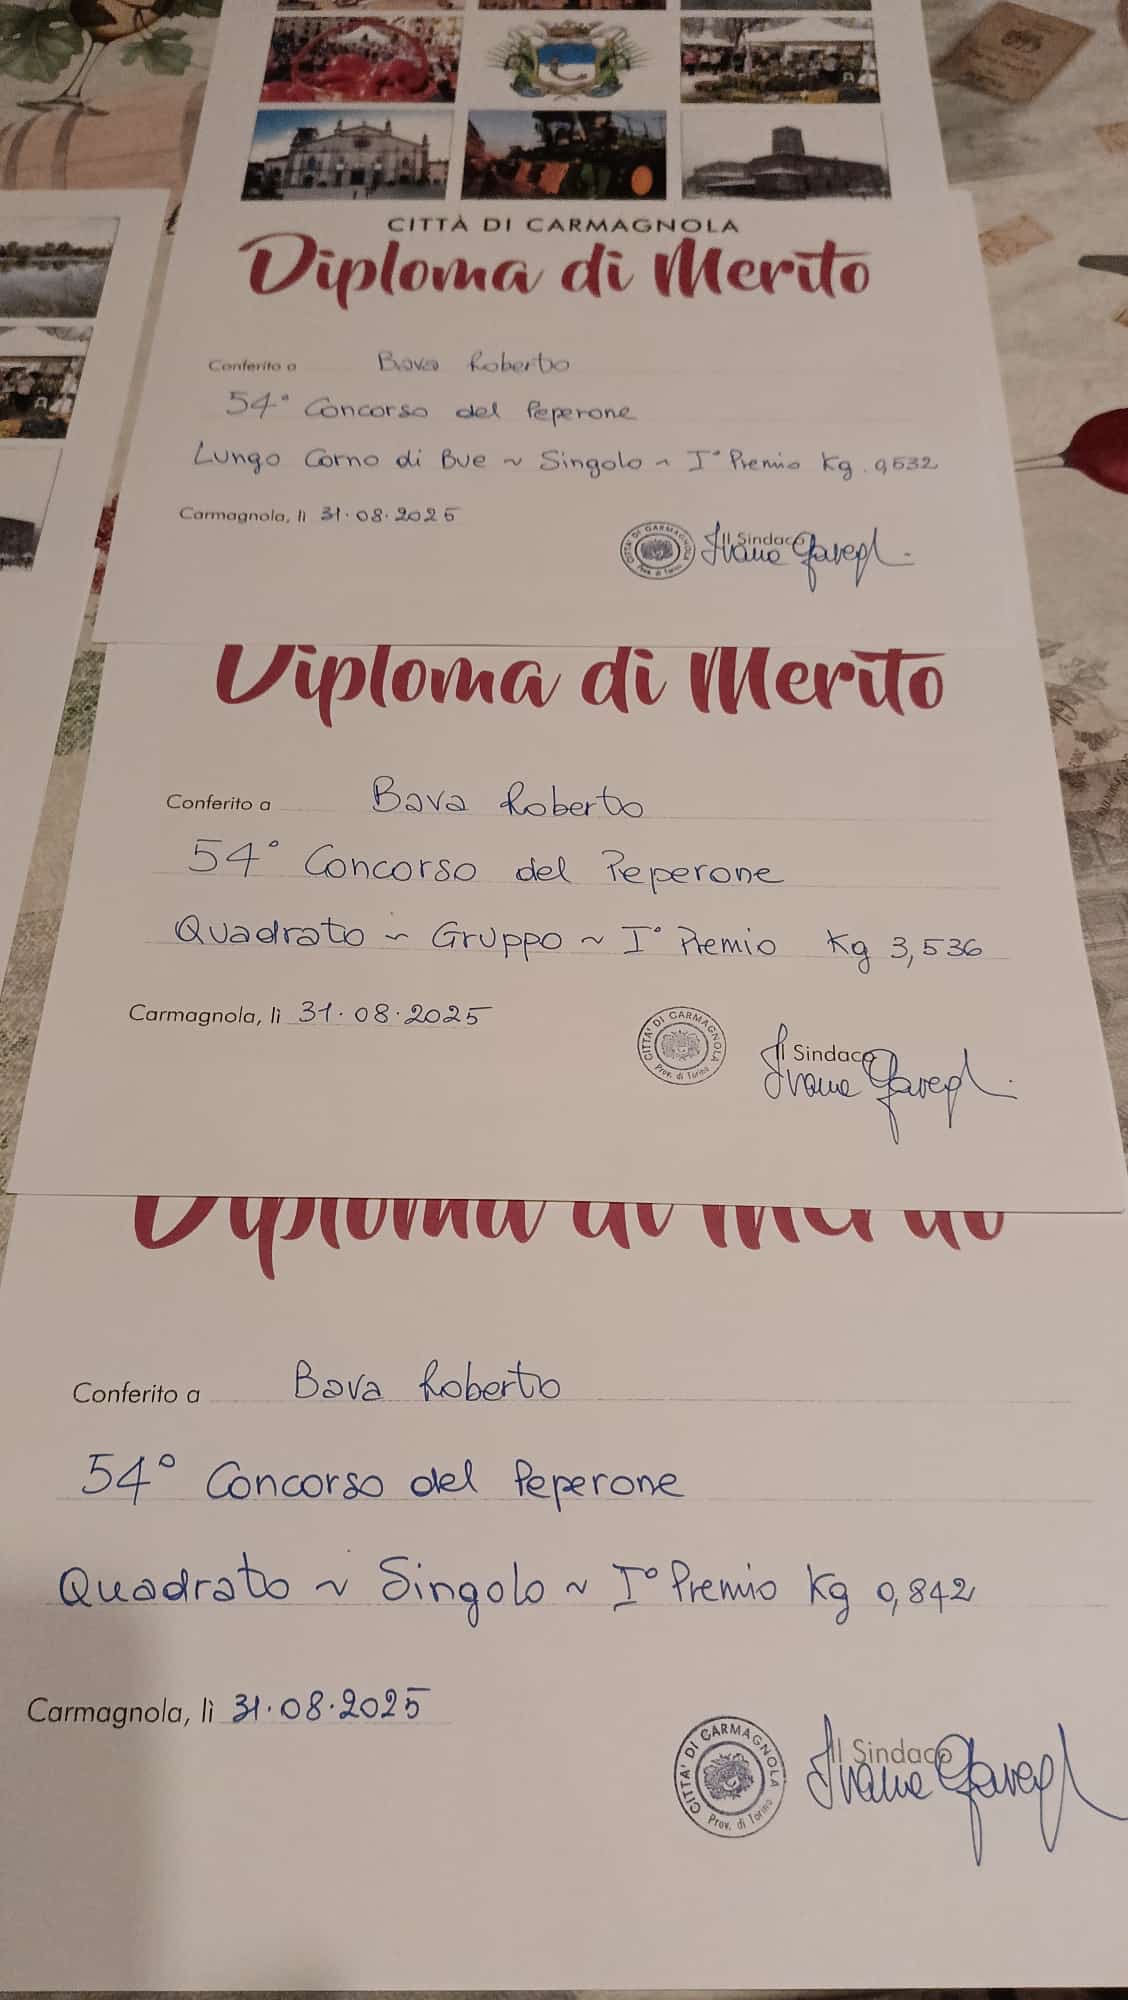 CITTÀ DI CARMAGNOLA
Diploma di Merito
Conferito a Bava Roberto
54° Concorso del Peperone
Lungo Corno di Bue ~ Singolo ~ I° Premio Kg. 0,532
Carmagnola, lì 31.08.2025
CITTA' DI CARMAGNOLA
Prov. di Torino
Il Sindaco
Diploma di Merito
Conferito a Bava Roberto
54° Concorso del Peperone
Quadrato ~ Gruppo ~ I° Premio Kg 3,536
Carmagnola, lì 31.08.2025
CITTA' DI CARMAGNOLA
Prov. di Torino
Il Sindaco
Diploma di Merito
Conferito a Bava Roberto
54° Concorso del Peperone
Quadrato ~ Singolo ~ I° Premio Kg 0,842
Carmagnola, lì 31.08.2025
CITTA' DI CARMAGNOLA
Prov. di Torino
Il Sindaco